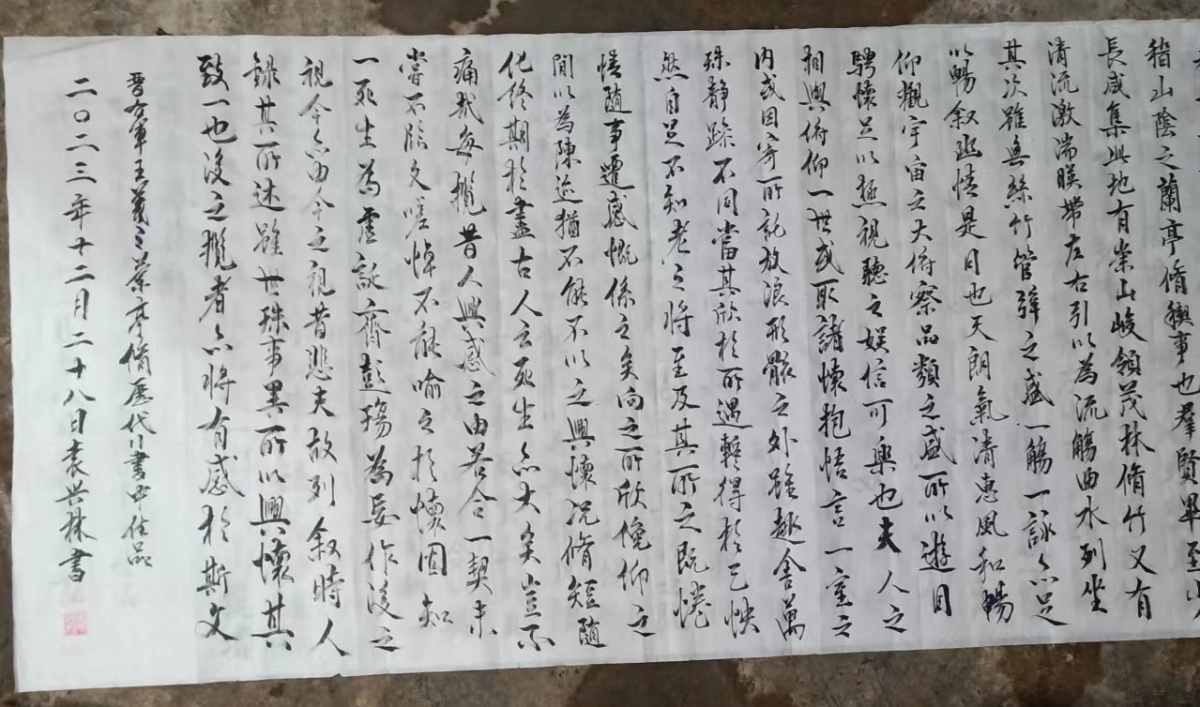 稽山陰之蘭亭脩禊事也羣賢畢至少
長咸集此地有崇山峻領茂林脩竹又有
清流激湍暎帶左右引以為流觴曲水列坐
其次雖無絲竹管弦之盛一觴一詠亦足
以暢叙幽情是日也天朗氣清惠風和暢
仰觀宇宙之大俯察品類之盛所以遊目
騁懷足以極視聽之娛信可樂也夫人之
相與俯仰一世或取諸懷抱悟言一室之
內或因寄所託放浪形骸之外雖趣舍萬
殊靜躁不同當其欣於所遇暫得於己怏
然自足不知老之將至及其所之既惓
情隨事遷感慨係之矣向之所欣俛仰之
間以為陳迹猶不能不以之興懷況脩短隨
化終期於盡古人云死生亦大矣豈不
痛哉每攬昔人興感之由若合一契未
嘗不臨文嗟悼不能喻之於懷固知
一死生為虛誕齊彭殤為妄作後之
視今亦由今之視昔悲夫故列叙時人
錄其所述雖世殊事異所以興懷其
致一也後之攬者亦將有感於斯文
晉右軍王羲之蘭亭脩歷代行書中佳品
二〇二三年十二月二十八日袁兴林書